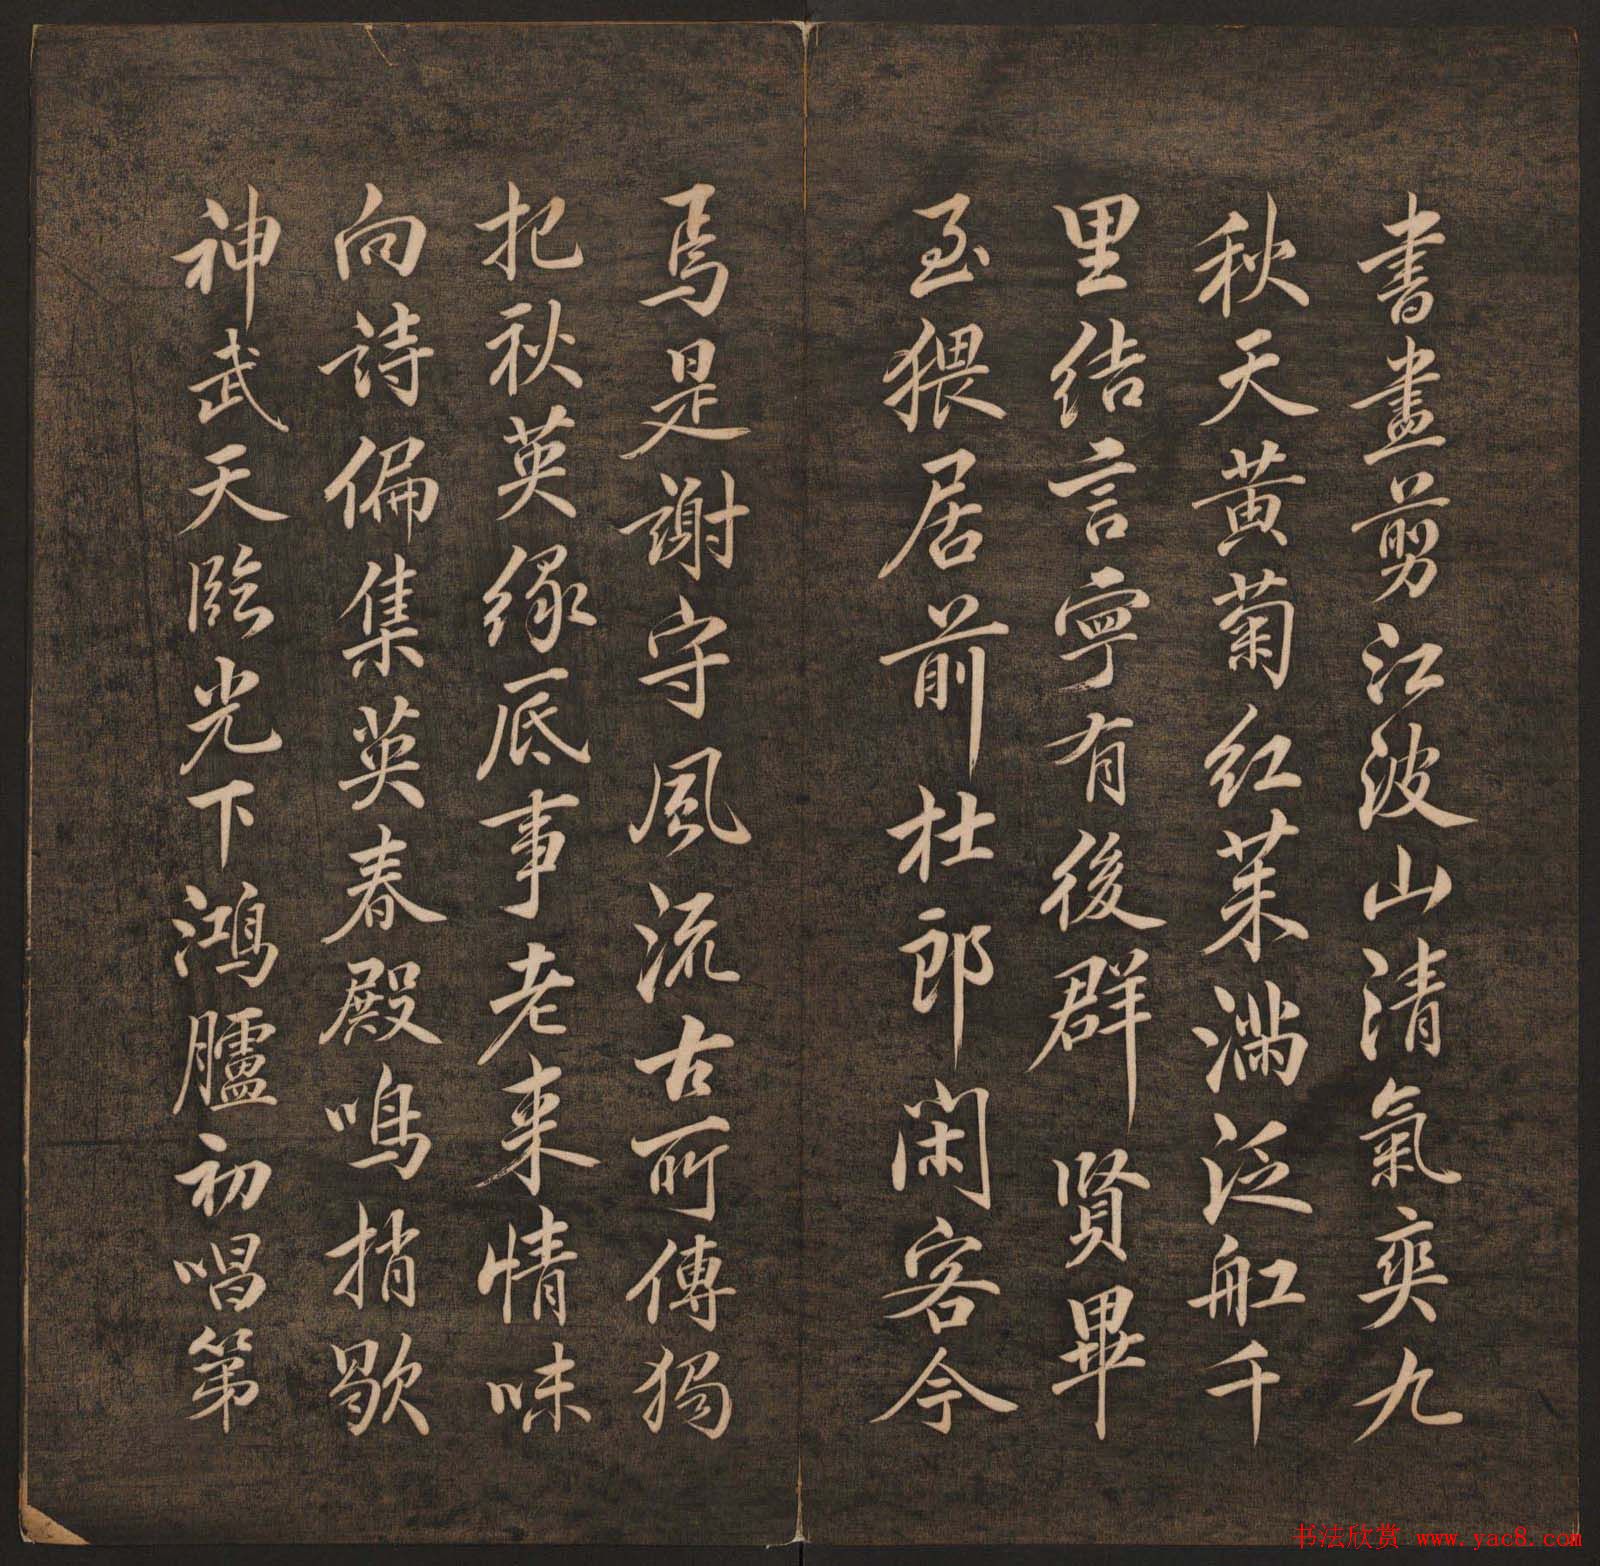 書畫剪江波山清氣爽九
秋天黃菊紅茱滿泛舡千
里結言寧有後群賢畢
至猥居前杜郎閑客今
焉是謝守風流古所傳獨
把秋英緣底事老来情味
向詩偏集英春殿鳴捎歇
神武天臨光下鴻臚初唱第
书法欣赏 www.yac8.com